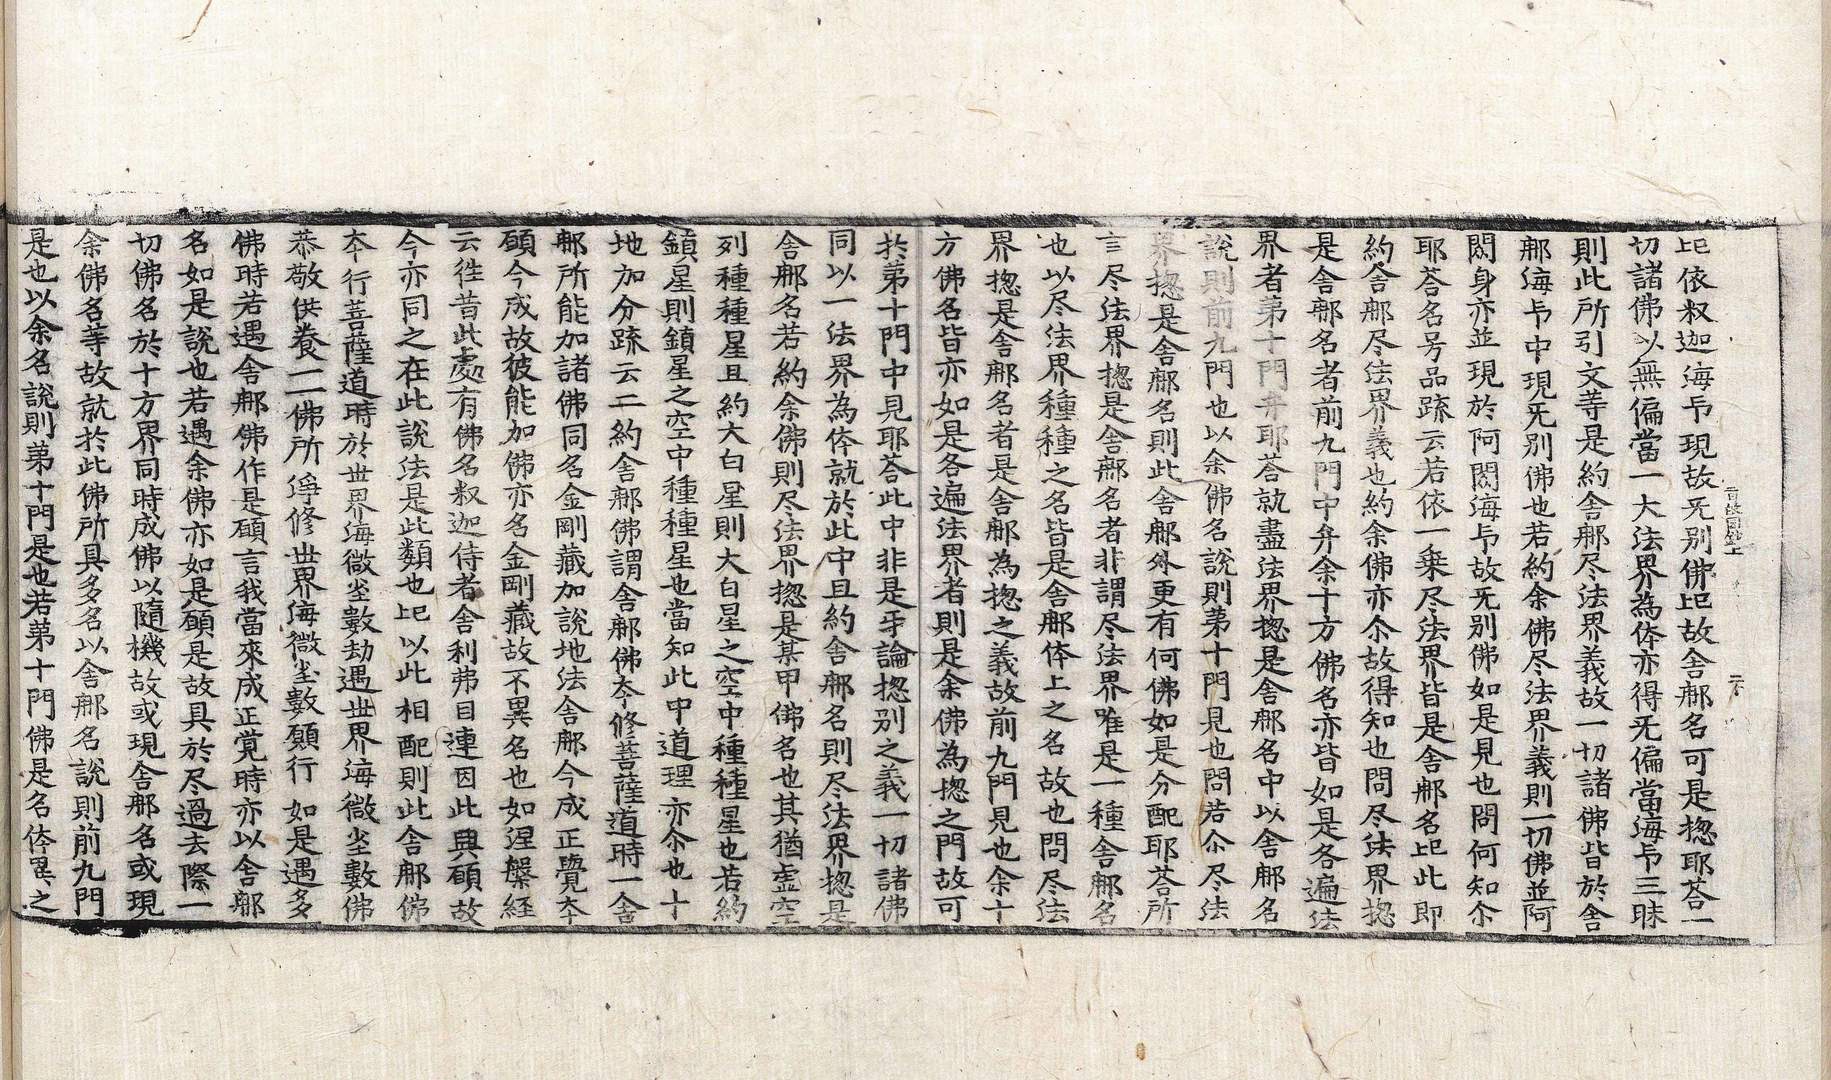 比依叔迦海卬現故旡別佛比故舍那名可是揔耶荅一
切諸佛以無偏當一大法界為体亦得旡偏當海卬三昧
則此所引文䓁是約舍那尽法界義故一切諸佛皆於舍
那海卬中現旡別佛也若約余佛尽法界義則一切佛並阿
閦身亦並現於阿閦海卬故旡別佛如是見也問何知尒
耶荅名号品疏云若依一乗尽法界皆是舍那名比此即
約舍那尽法界義也約余佛亦尒故得知也問尽法界揔
是舍那名者前九門中弁余十方佛名亦皆如是各遍法
界者第十門弁耶荅就盡法界揔是舍那名中以舍那名
說則前九門也以余佛名說則第十門見也問若尒尽法
界揔是舍那名則此舍那外更有何佛如是分配耶荅所
言尽法界揔是舍那名者非謂尽法界唯是一種舍那名
也以尽法界種種之名皆是舍那体上之名故也問尽法
界揔是舍那名者是舍那為揔之義故前九門見也余十
方佛名皆亦如是各遍法界者則是余佛為揔之門故可
扵第十門中見耶荅此中非是𢌥論揔別之義一切諸佛
同以一法界為体就於此中且約舍那名則尽法界揔是
舍那名若約余佛則尽法界揔是某甲佛名也其猶虛空
列種種星且約大白星則大白星之空中種種星也若約
鎮星則鎮星之空中種種星也當知此中道理亦尒也十
地加分疏云二約舍那佛謂舍那佛夲修菩薩道時一舍
那所能加諸佛同名金剛藏加說地法舍那今成正覺夲
願今成故彼能加佛亦名金剛藏故不異名也如涅槃経
云徃昔此處有佛名叔迦侍者舍利弗目連因此興願故
今亦同之在此說法是此類也比以此相配則此舍那佛
夲行菩薩道時於世界海微尘數劫遇世界海微尘數佛
恭敬供養一一佛所淨修世界海微尘數願行如是遇多
佛時若遇舍那佛作是願言我當來成正覚時亦以舍那
名如是說也若遇余佛亦如是願是故具於尽過去際一
切佛名於十方界同時成佛以隨機故或現舍那名或現
余佛名等故就於此佛所具多名以舍那名說則前九門
是也以余名說則第十門是也若第十門佛是名体異之